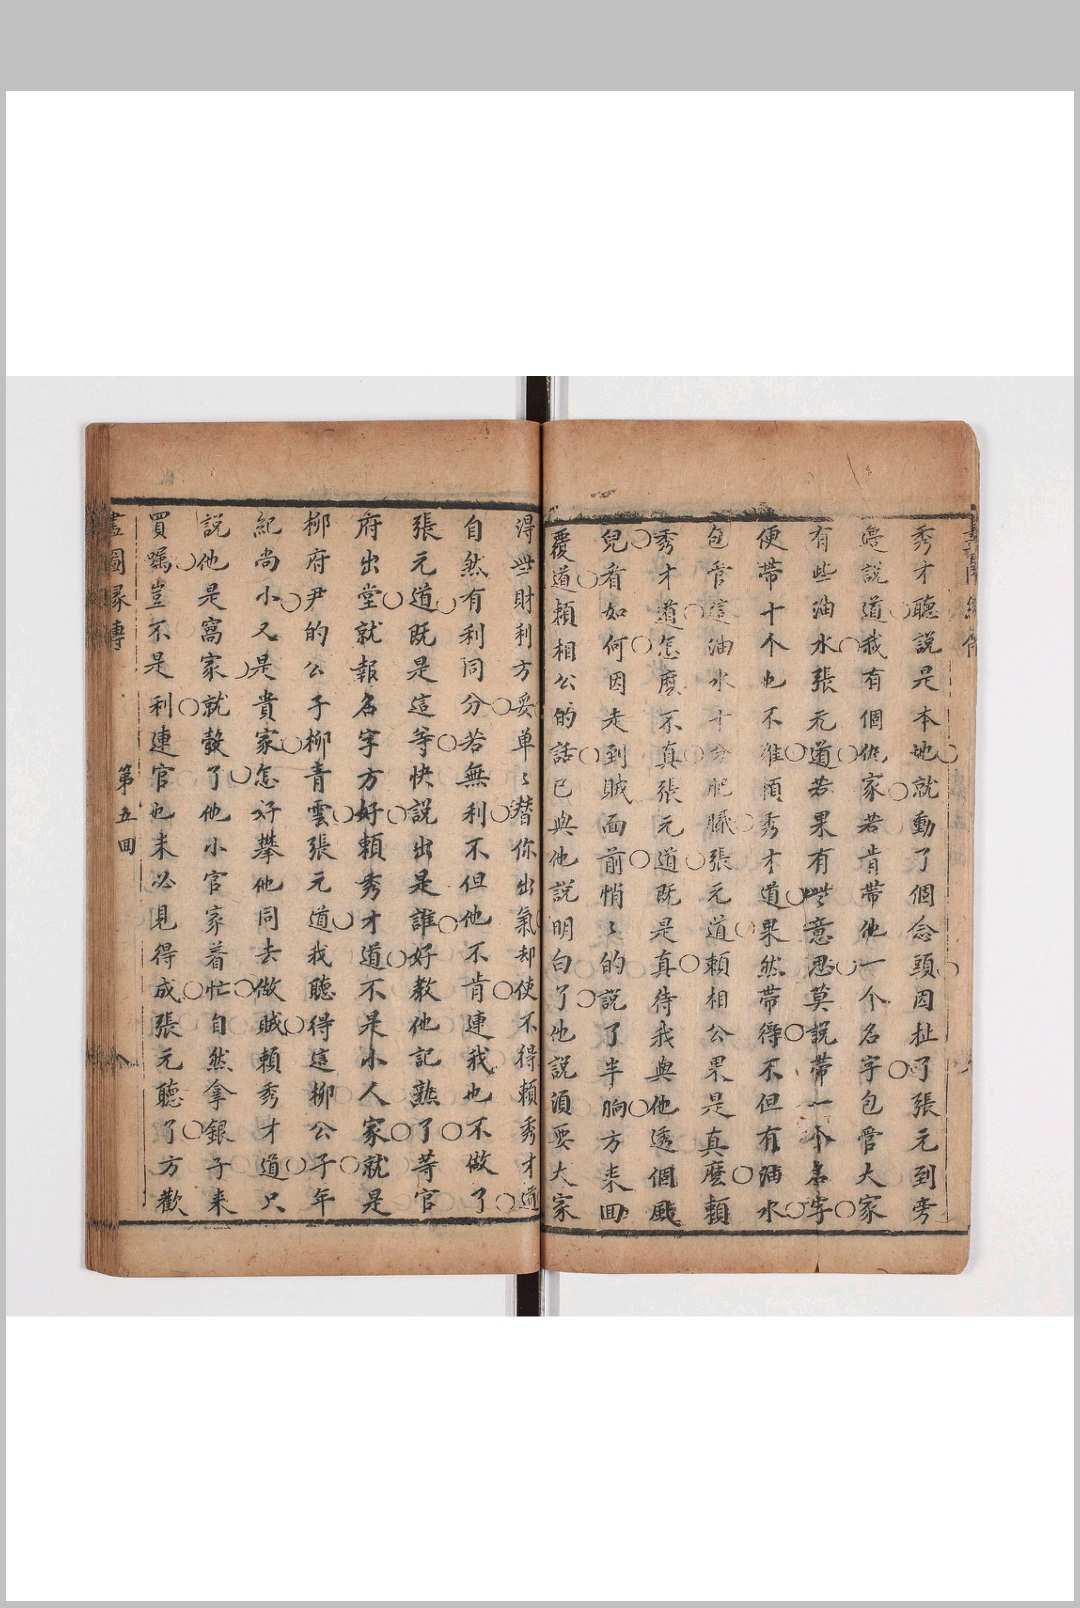 秀才聽說是本地就動了個念頭因扯了張元到旁
邊說道我有個仇家若肯帶他一个名字包管大家
有些油水張元道若果有些意思莫說帶一个名字
便帶十个也不難賴秀才道果然帶得不但有油水
包管這油水十分肥膩張元道賴相公果是真麼賴
秀才道怎麼不真張元道既是真待我與他透個風
兒看如何因走到賊面前悄〻的說了半晌方来回
覆道賴相公的話已與他說明白了他說須要大家
得些財利方妥单〻替你出氣却使不得賴秀才道
自然有利同分若無利不但他不肯連我也不做了
張元道既是這等快說出是誰好教他記熟了等官
府出堂就報名字方好賴秀才道不是小人家就是
柳府尹的公子柳青雲張元道我聽得這柳公子年
紀尚小又是貴家怎好攀他同去做賊賴秀才道只
說他是窩家就彀了他小官家着忙自然拿銀子来
買囑豈不是利連官也未必見得成張元聽了方歡
畫圖緣傳
第五回